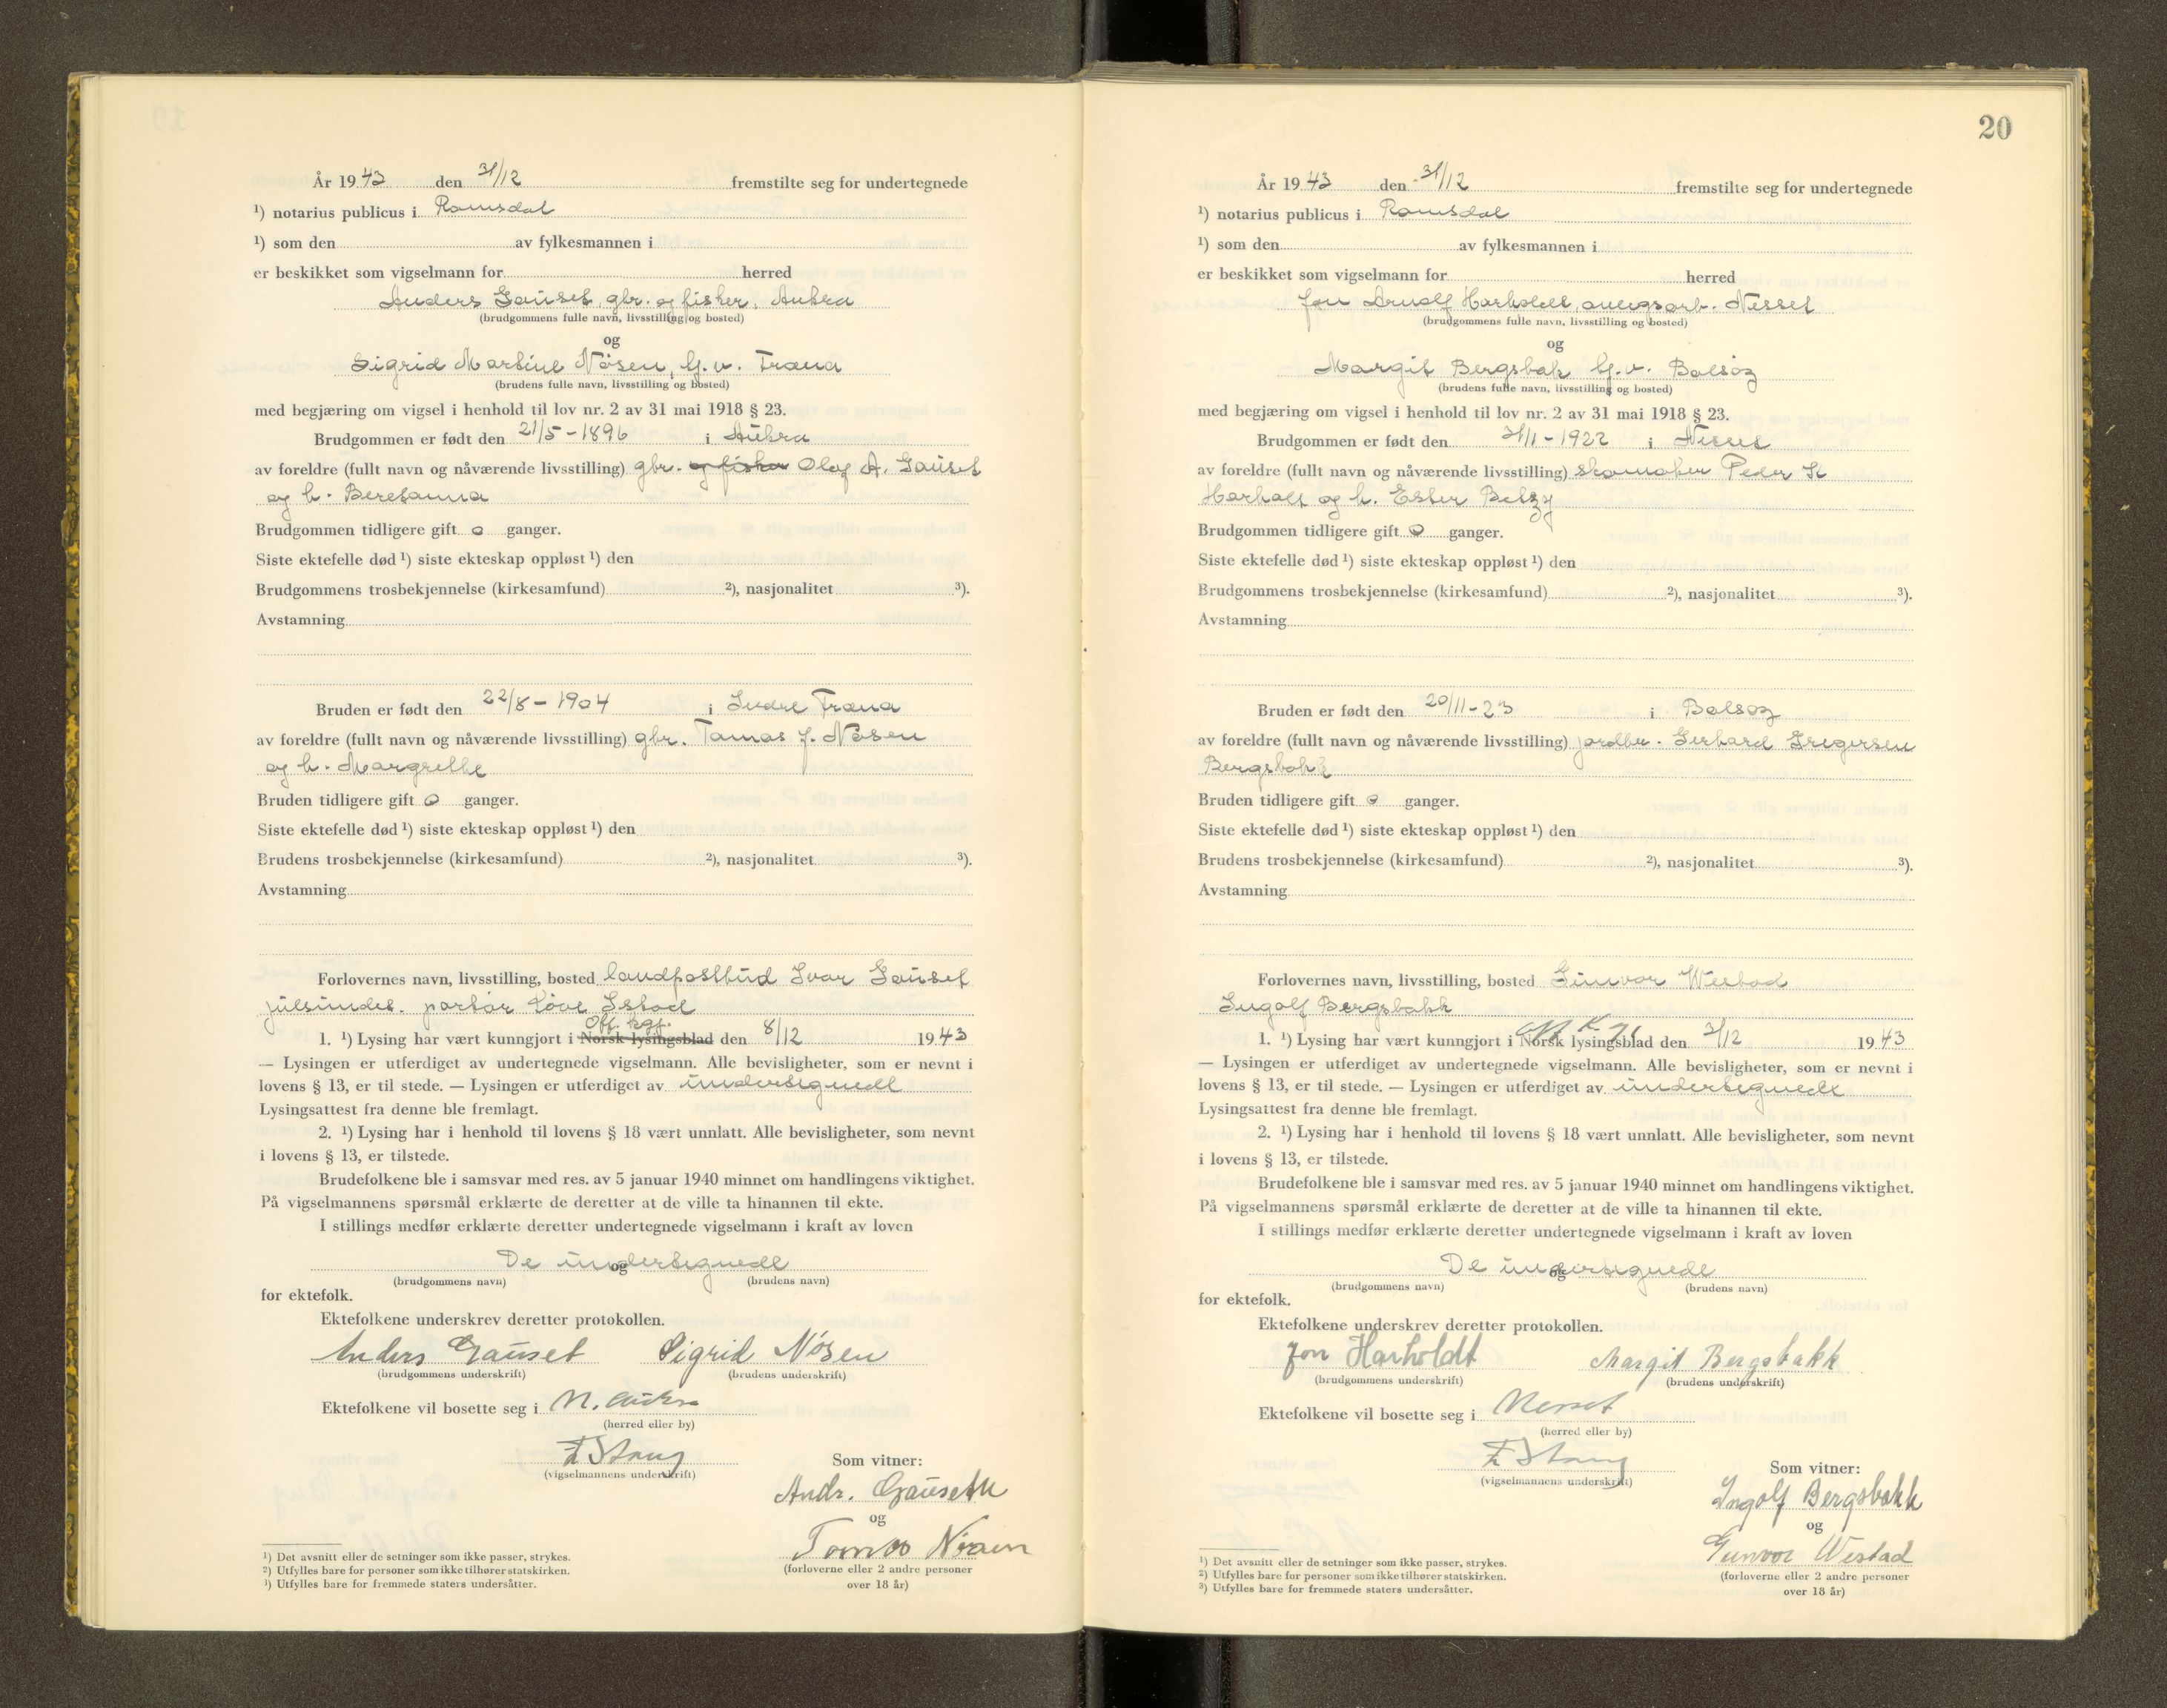 År 1943 den 31/12 fremstilte seg for undertegnede
¹) notarius publicus i Romsdal
¹) som den av fylkesmannen i
er beskikket som vigselmann for herred
Anders Gauset, gbr. og fisker, Aukra
(brudgommens fulle navn, livsstilling og bosted)
og
Sigrid Martine Nåsen, hj.v. Fræna
(brudens fulle navn, livsstilling og bosted)
med begjæring om vigsel i henhold til lov nr. 2 av 31 mai 1918 § 23.
Brudgommen er født den 21/5-1896 i Aukra
av foreldre (fullt navn og nåværende livsstilling) gbr. og fisker Olaf A. Gauset
og h. Beretanna
Brudgommen tidligere gift 0 ganger.
Siste ektefelle død ¹) siste ekteskap oppløst ¹) den
Brudgommens trosbekjennelse (kirkesamfund) ²), nasjonalitet ³).
Avstamning
Bruden er født den 22/8-1904 i Indre Fræna
av foreldre (fullt navn og nåværende livsstilling) gbr. Tomas J. Nåsen
og h. Margrethe
Bruden tidligere gift 0 ganger.
Siste ektefelle død ¹) siste ekteskap oppløst ¹) den
Brudens trosbekjennelse (kirkesamfund) ²), nasjonalitet ³).
Avstamning
Forlovernes navn, livsstilling, bosted landpostbud Ivar Gauset
Julsundet.
Off. kgj.
1. ¹) Lysing har vært kunngjort i Norsk lysingsblad den 8/12 1943
— Lysingen er utferdiget av undertegnede vigselmann. Alle bevisligheter, som er nevnt i
lovens § 13, er til stede. — Lysingen er utferdiget av undertegnede
Lysingsattest fra denne ble fremlagt.
2. ¹) Lysing har i henhold til lovens § 18 vært unnlatt. Alle bevisligheter, som nevnt
i lovens § 13, er tilstede.
Brudefolkene ble i samsvar med res. av 5 januar 1940 minnet om handlingens viktighet.
På vigselmannens spørsmål erklærte de deretter at de ville ta hinannen til ekte.
I stillings medfør erklærte deretter undertegnede vigselmann i kraft av loven
De undertegnede
og
(brudgommens navn) (brudens navn)
for ektefolk.
Ektefolkene underskrev deretter protokollen.
Anders Gauset Sigrid Nåsen
(brudgommens underskrift) (brudens underskrift)
Ektefolkene vil bosette seg i N. Aukra
(herred eller by)
Stang
(vigselmannens underskrift)
Som vitner:
Andr. Gauseth
og
Tomas Nåsen
(forloverne eller 2 andre personer
over 18 år)
¹) Det avsnitt eller de setninger som ikke passer, strykes.
²) Utfylles bare for personer som ikke tilhører statskirken.
³) Utfylles bare for fremmede staters undersåtter.
20
År 1943 den 31/12 fremstilte seg for undertegnede
¹) notarius publicus i Romsdal
¹) som den av fylkesmannen i
er beskikket som vigselmann for herred
Jon Arnolf Harholdt, anlegsarb. Nesset
(brudgommens fulle navn, livsstilling og bosted)
og
Margit Bergsbak hj.v. Bolsøy
(brudens fulle navn, livsstilling og bosted)
med begjæring om vigsel i henhold til lov nr. 2 av 31 mai 1918 § 23.
Brudgommen er født den 31/1-1922 i Nesset
av foreldre (fullt navn og nåværende livsstilling) skomaker Peder K
Harholt og h. Ester Betzy
Brudgommen tidligere gift 0 ganger.
Siste ektefelle død ¹) siste ekteskap oppløst ¹) den
Brudgommens trosbekjennelse (kirkesamfund) ²), nasjonalitet ³).
Avstamning
Bruden er født den 20/11-23 i Bolsøy
av foreldre (fullt navn og nåværende livsstilling) jordbr. Gerhard Gregersen
Bergsbakk
Bruden tidligere gift 0 ganger.
Siste ektefelle død ¹) siste ekteskap oppløst ¹) den
Brudens trosbekjennelse (kirkesamfund) ²), nasjonalitet ³).
Avstamning
Forlovernes navn, livsstilling, bosted Gunvor Westad
Ingolf Bergsbakk
Off. kgj.
1. ¹) Lysing har vært kunngjort i Norsk lysingsblad den 3/12 1943
— Lysingen er utferdiget av undertegnede vigselmann. Alle bevisligheter, som er nevnt i
lovens § 13, er til stede. — Lysingen er utferdiget av undertegnede
Lysingsattest fra denne ble fremlagt.
2. ¹) Lysing har i henhold til lovens § 18 vært unnlatt. Alle bevisligheter, som nevnt
i lovens § 13, er tilstede.
Brudefolkene ble i samsvar med res. av 5 januar 1940 minnet om handlingens viktighet.
På vigselmannens spørsmål erklærte de deretter at de ville ta hinannen til ekte.
I stillings medfør erklærte deretter undertegnede vigselmann i kraft av loven
De undertegnede
og
(brudgommens navn) (brudens navn)
for ektefolk.
Ektefolkene underskrev deretter protokollen.
Jon Harholdt Margit Bergsbakk
(brudgommens underskrift) (brudens underskrift)
Ektefolkene vil bosette seg i Nesset
(herred eller by)
Stang
(vigselmannens underskrift)
Som vitner:
Ingolf Bergsbakk
og
Gunvor Westad
(forloverne eller 2 andre personer
over 18 år)
¹) Det avsnitt eller de setninger som ikke passer, strykes.
²) Utfylles bare for personer som ikke tilhører statskirken.
³) Utfylles bare for fremmede staters undersåtter.